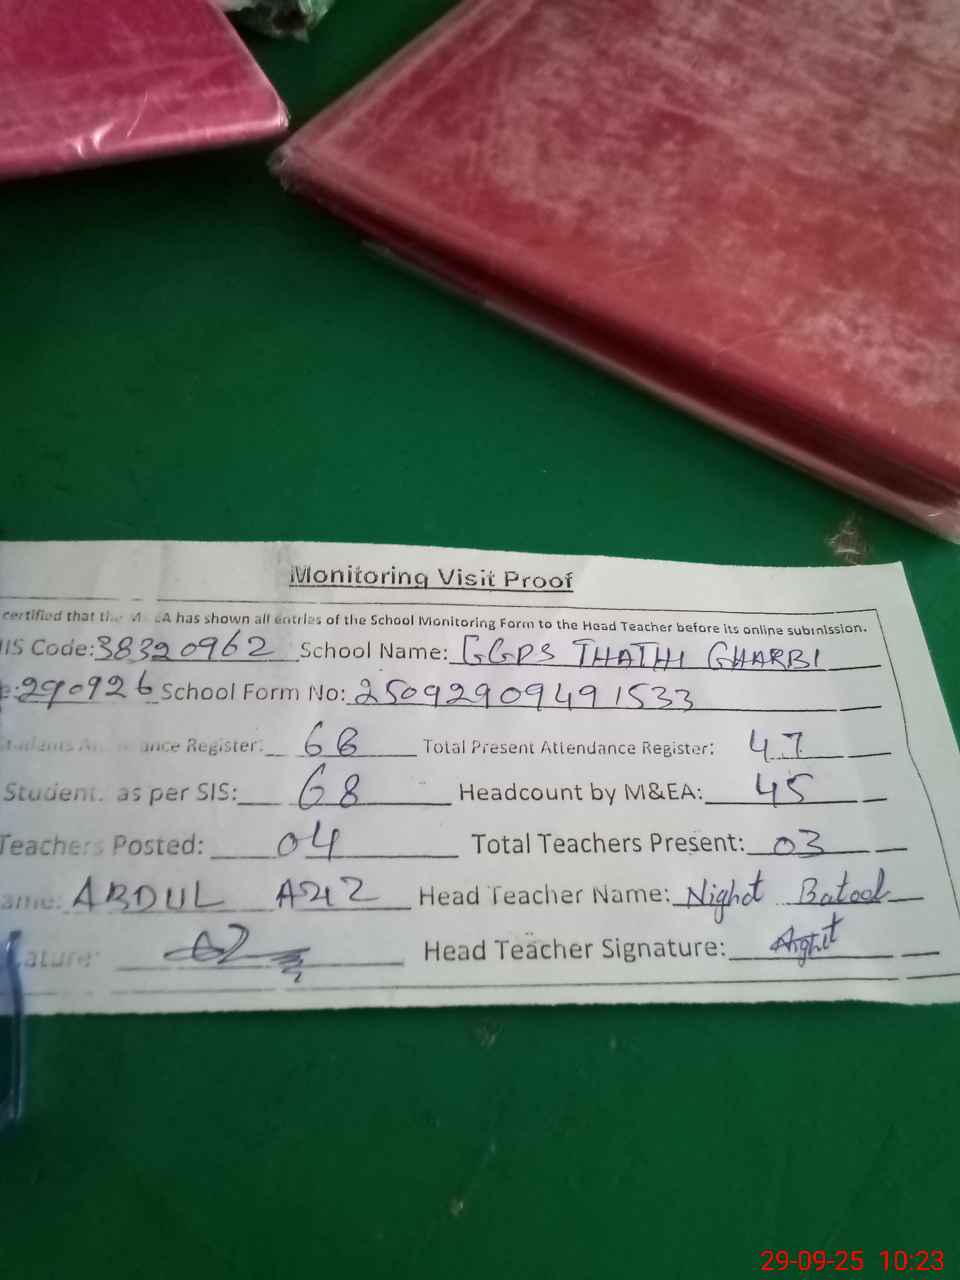 Monitoring Visit Proof
certified that the M&EA has shown all entries of the School Monitoring Form to the Head Teacher before its online submission.
IIS Code: 38320962 School Name: GGPS THATHI GHARBI
e: 290926 School Form No: 25092909491533
Students Attendance Register: 68 Total Present Attendance Register: 47
Student. as per SIS: 68 Headcount by M&EA: 45
Teachers Posted: 04 Total Teachers Present: 03
ame: ABDUL AZIZ Head Teacher Name: Nighat Batool
ature: Head Teacher Signature: Nighat
29-09-25 10:23